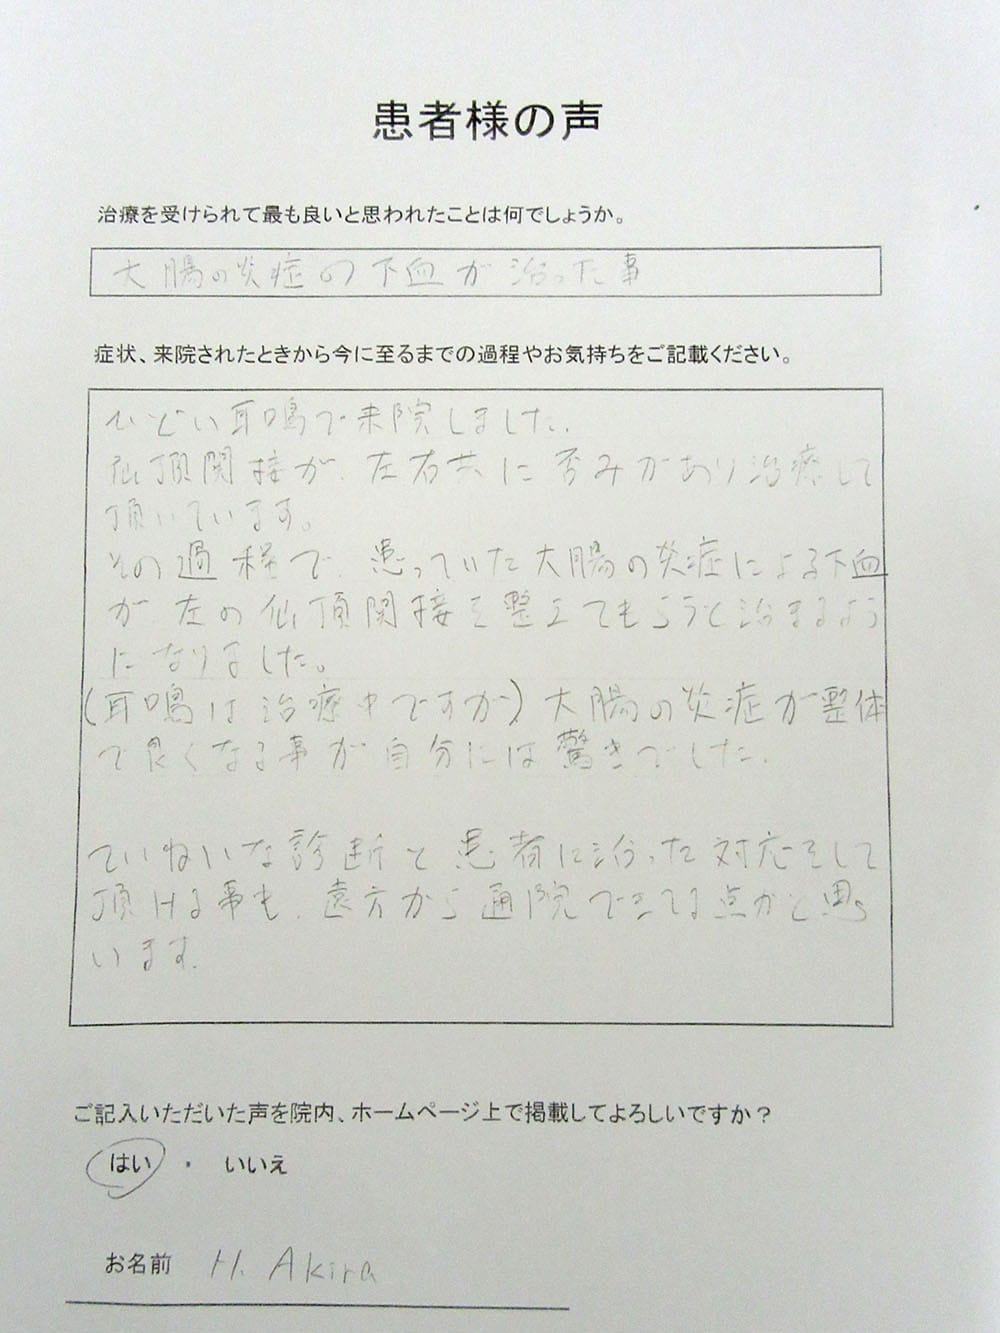 患者様の声
治療を受けられて最も良いと思われたことは何でしょうか。
大腸の炎症の下血が治った事
症状、来院されたときから今に至るまでの過程やお気持ちをご記載ください。
ひどい耳鳴で来院しました.
仙頂関接が、左右共に歪みがあり治療して
頂いています。
その過程で、患っていた大腸の炎症による下血
が左の仙頂関接を整えてもらうと治まるよう
になりました。
(耳鳴は治療中ですが)大腸の炎症が整体
で良くなる事が自分には驚きでした.
ていねいな診断と患者に沿った対応をして
頂ける事も、遠方から通院できてる点かと思
います.
ご記入いただいた声を院内、ホームページ上で掲載してよろしいですか？
はい ・ いいえ
お名前 H. Akira